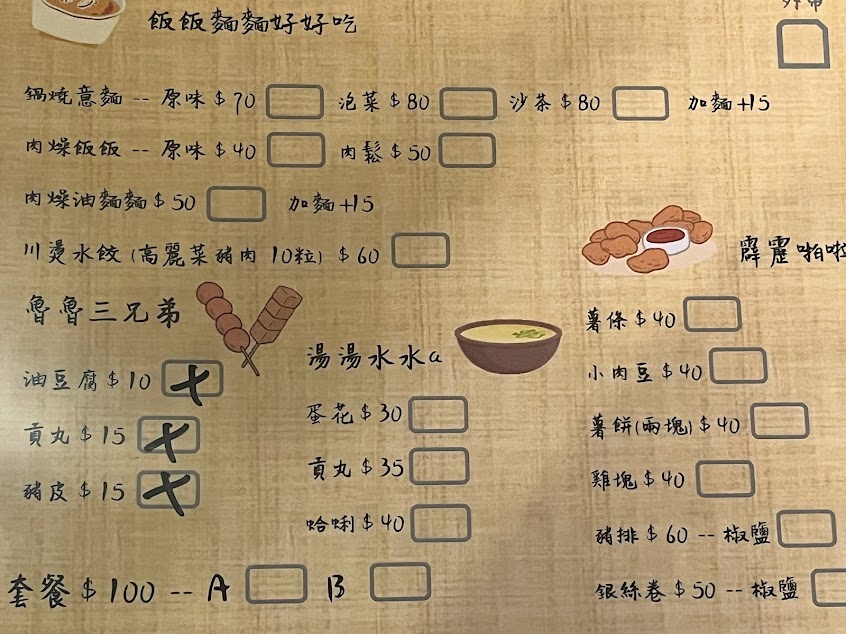 飯飯麵麵好好吃
鍋燒意麵 -- 原味 $70 泡菜 $80 沙茶 $80 加麵+15
肉燥飯飯 -- 原味 $40 肉鬆 $50
肉燥油麵麵 $50 加麵+15
川燙水餃(高麗菜豬肉 10粒) $60
霹靂啪啦
魯魯三兄弟
油豆腐 $10
貢丸 $15
豬皮 $15
湯湯水水a
蛋花 $30
貢丸 $35
蛤蜊 $40
薯條 $40
小肉豆 $40
薯餅(兩塊) $40
雞塊 $40
豬排 $60 -- 椒鹽
銀絲卷 $50 -- 椒鹽
套餐 $100 -- A B